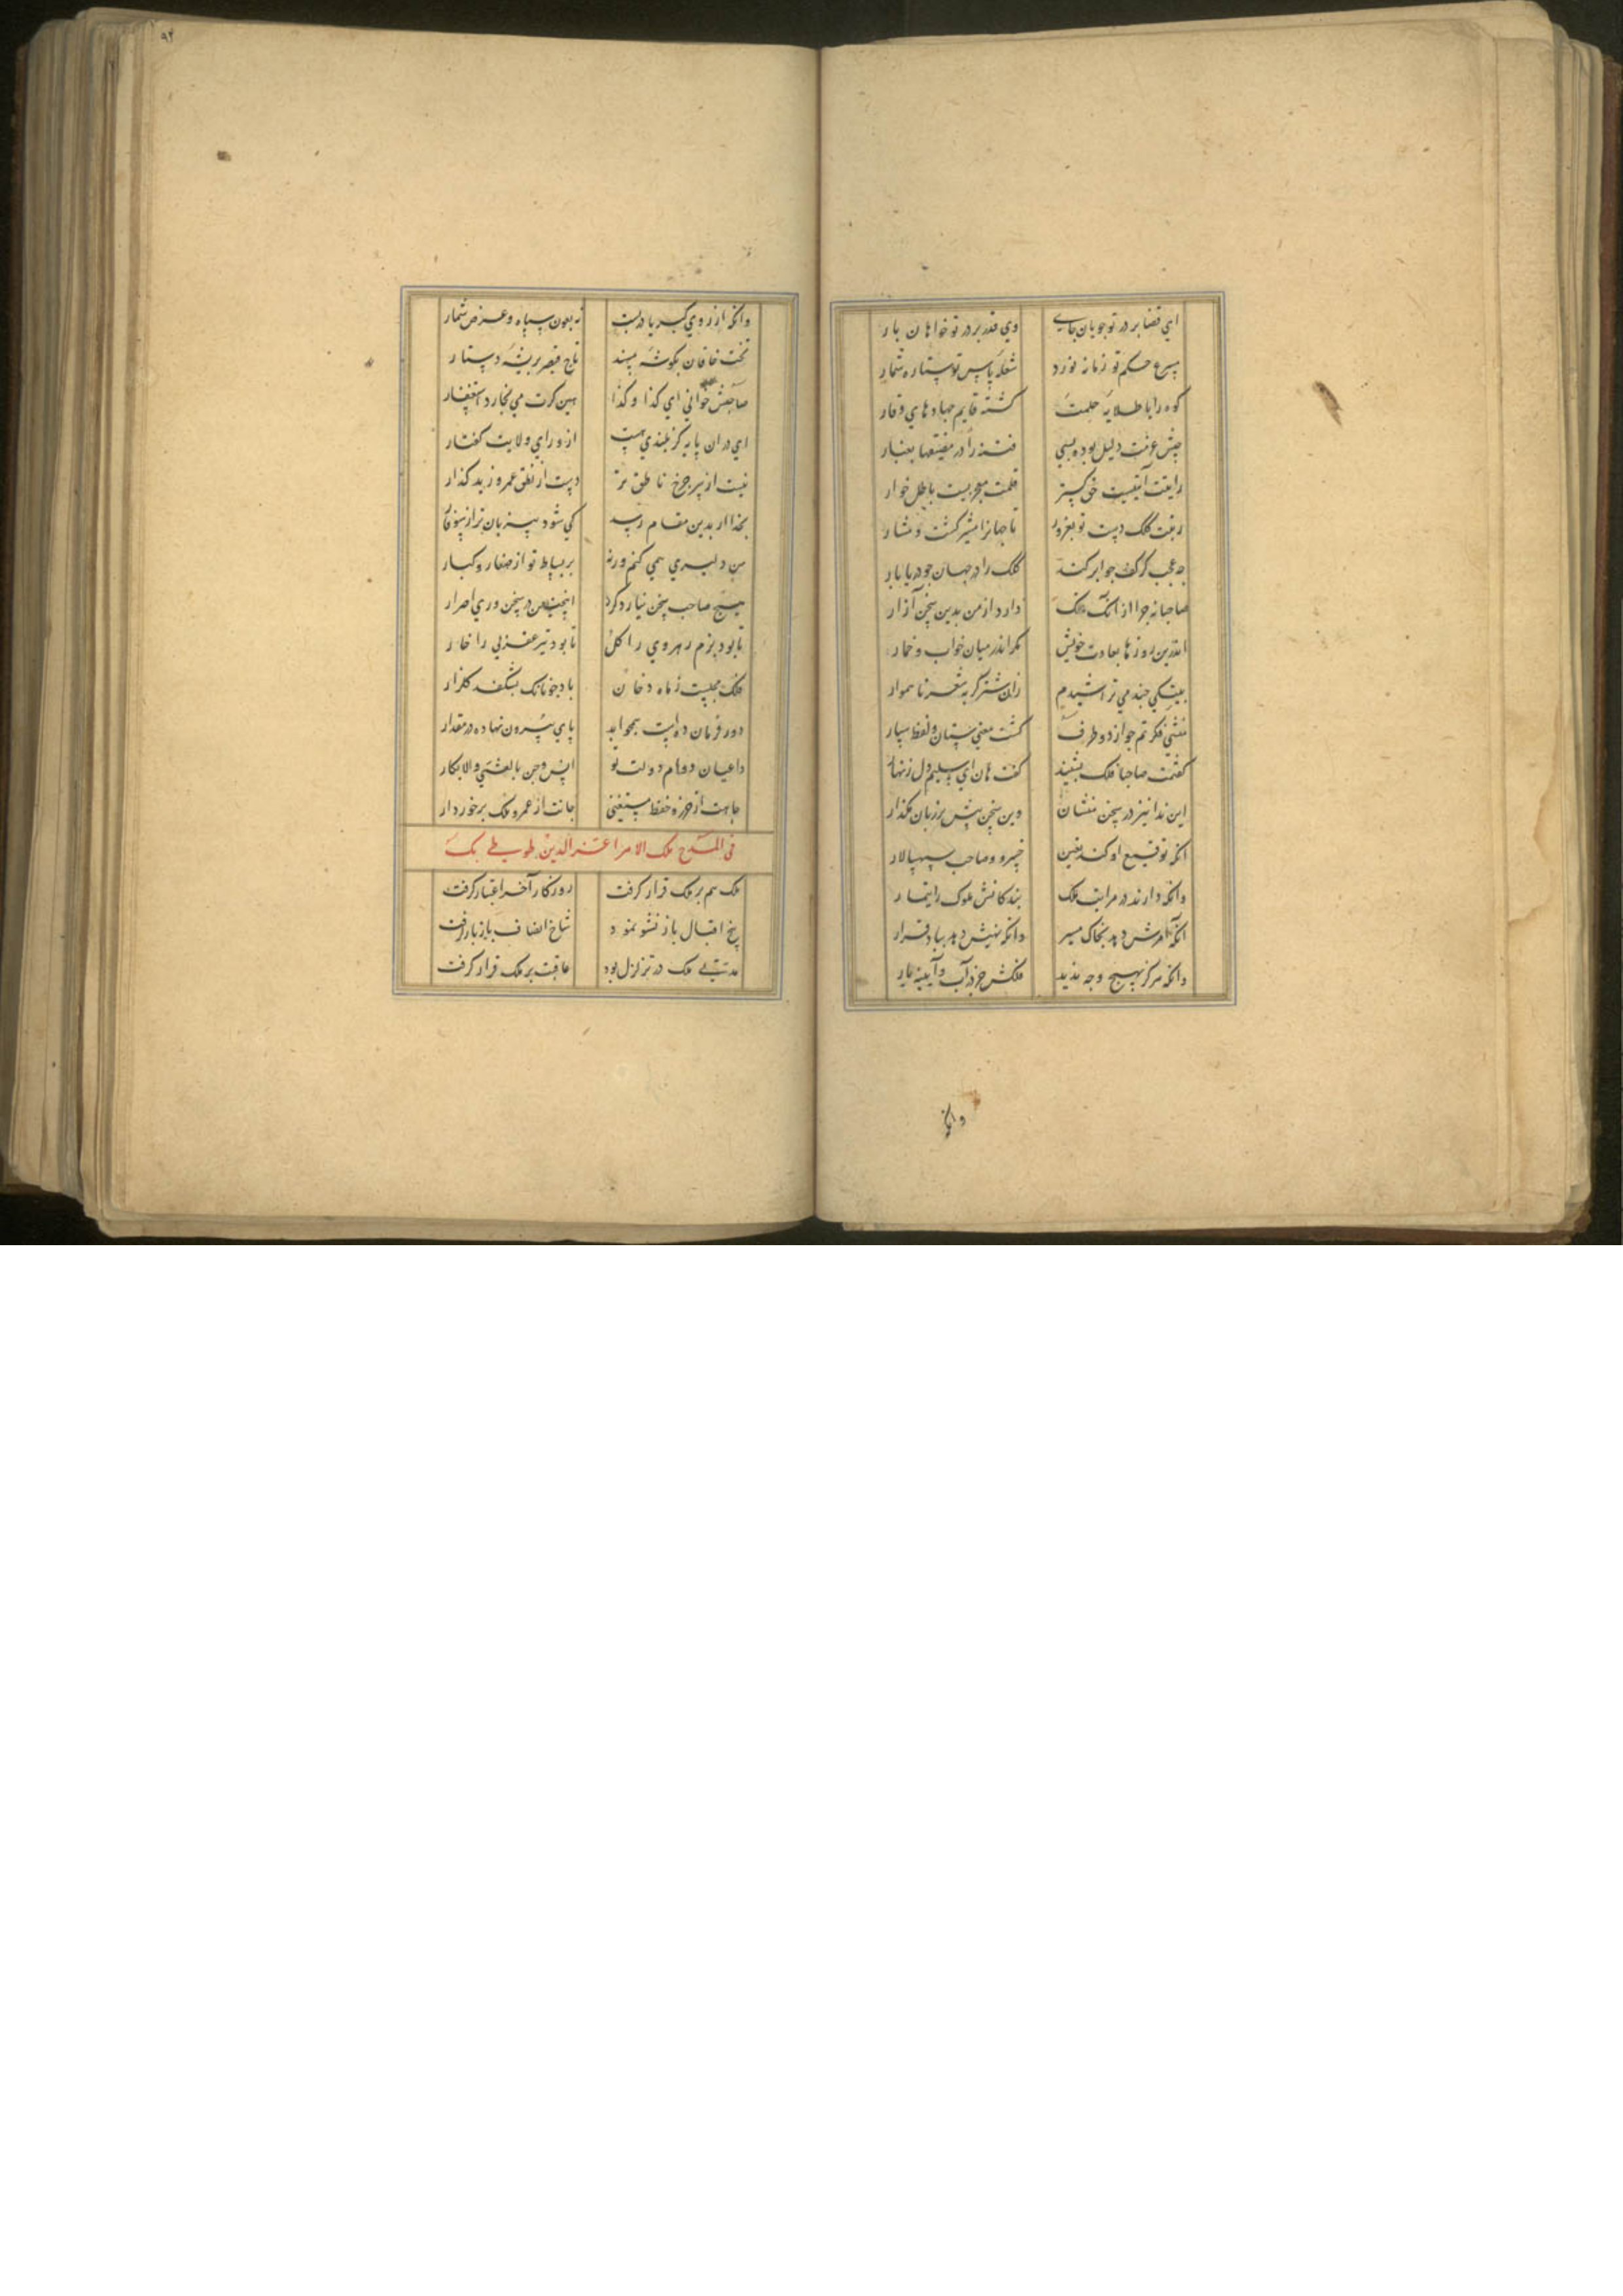 ای قضا بر در تو جویان جای وی قدر بر در تو خواهان بار
سرع حکم تو زمانه نورد شعله پاس تو ستاره شمار
کوه را با طلایه حلمت کشته قایم جهادهای وقار
جیش عونت دلیل بوده بسی فتنه را در مضیقها بغبار
رایتت آیتیست حق کستر قلمت معجزیست باطل خوار
رغبت کلک دست تو بغزور تا جهانرا مشیر کشت و مشار
چه عجب کر کف جوابر کند کلک را در جهان جو دریا بار
صاحبا نه جرا از آنک فلک دارد از من بدین سخن آزار
اندرین روزها بعادت خویش مکر اندر میان خواب و خمار
بیتکی جند می تراشیدم زان شتر کربه شعر ناهموار
منشی فکرتم جو از دو طرف کشت معنی ستان و لفظ سپار
کفتمت صاحبا فلک بشنید کفت هان ای سلیم دل زنهار
این ندا نیز در سخن منشان وین سخن پیش بر زبان مکذار
انکه توقیع او کند تعین خسرو و صاحب و سپهسالار
وانکه دارند در مراتب ملک بندکانش ملوک را تیمار
انکه امرش دهد بخاک مسیر وانکه نهیش دهد بباد قرار
وانکه هرکز بهیچ وجه ندید فلکش جز در آب و آینه یار
وانکه
۹۴
وانکه از روی کبریا دربست نه بعون سپاه و عرض شمار
تخت خاقان بکوشه مسند تاج قیصر بریشه دستار
صاحبش خوانی ای کذا و کذا هین کرت می بخارد استغفار
ای در ان پایه کز بلندی هست از ورای ولایت کفتار
نیست از تیر چرخ ناطق تر دست از نطق عمرو زید کذار
بخدا ار بدین مقام رسد کی شود سر زبان تر از سوفار
من دلیری همی کنم ورنه بر بساط تو از صغار و کبار
هیچ صاحب سخن نیارد کرد اینچنین در سخن وری اصرار
تا بود بزم زهره وی را کل تا بود تیر عقربی را خار
فلک مجلست ز ماه رخان باد جونانک بشکفد کلزار
دور فرمان دهیت همجو ابد پای بیرون نهاده در مقدار
داعیان دوام دولت تو انس و جن بالعشی والابکار
جاهت از حرز و حفظ مستغنی جانت از عمر و ملک برخوردار
فی المدح ملک الامرا عز الدین طوطی بک
ملک هم بر ملک قرار کرفت روزکار آخر اعتبار کرفت
بیخ اقبال باز نشو نمود شاخ انصاف باز بار کرفت
مدتی ملک در تزلزل بود عاقبت بر ملک قرار کرفت